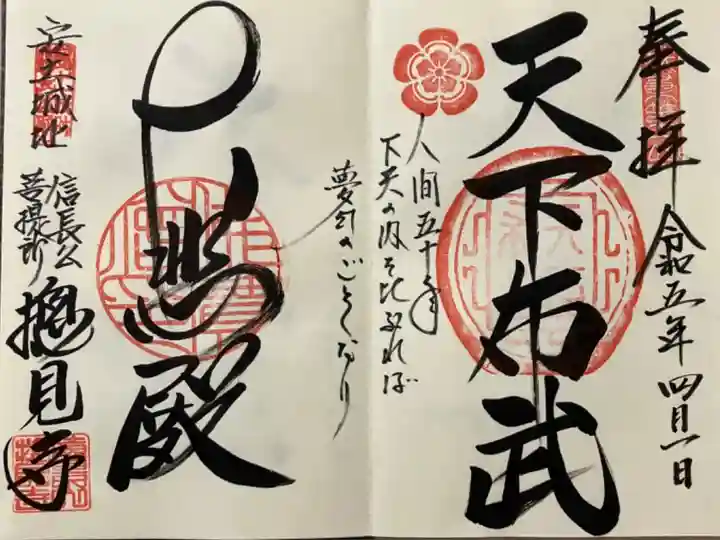 奉拝
令和五年四月一日
天下布武
人間五十年
下天の内をくらぶれば
夢幻のごとくなり
大悲殿
安土城址
信長公
菩提所
摠見寺